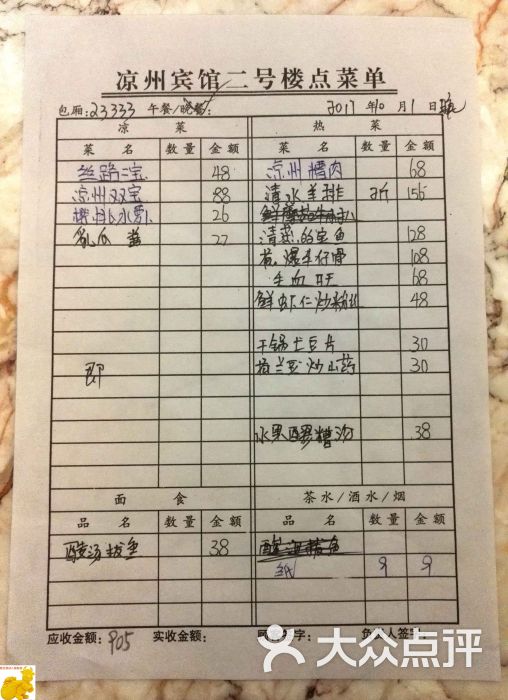 凉州宾馆二号楼点菜单
包厢：23333 午餐/晚餐： 2017年10月1日
凉菜 热菜
菜名 数量 金额 菜名 数量 金额
丝路二宝 48 凉州糟肉 68
凉州双宝 88 清水羊排 斤 156
水萝 26
乳瓜 27 清蒸 鱼 128
爆牛仔骨 108
68
鲜虾仁炒粉 48
干锅土豆片 30
即 荷兰豆炒山药 30
水果醪糟汤 38
面食 茶水/酒水/烟
品名 数量 金额 品名 数量 金额
酸汤拔鱼 38
纸 9 9
应收金额：905 实收金额： 顾 字： 负 人签字：
大众点评